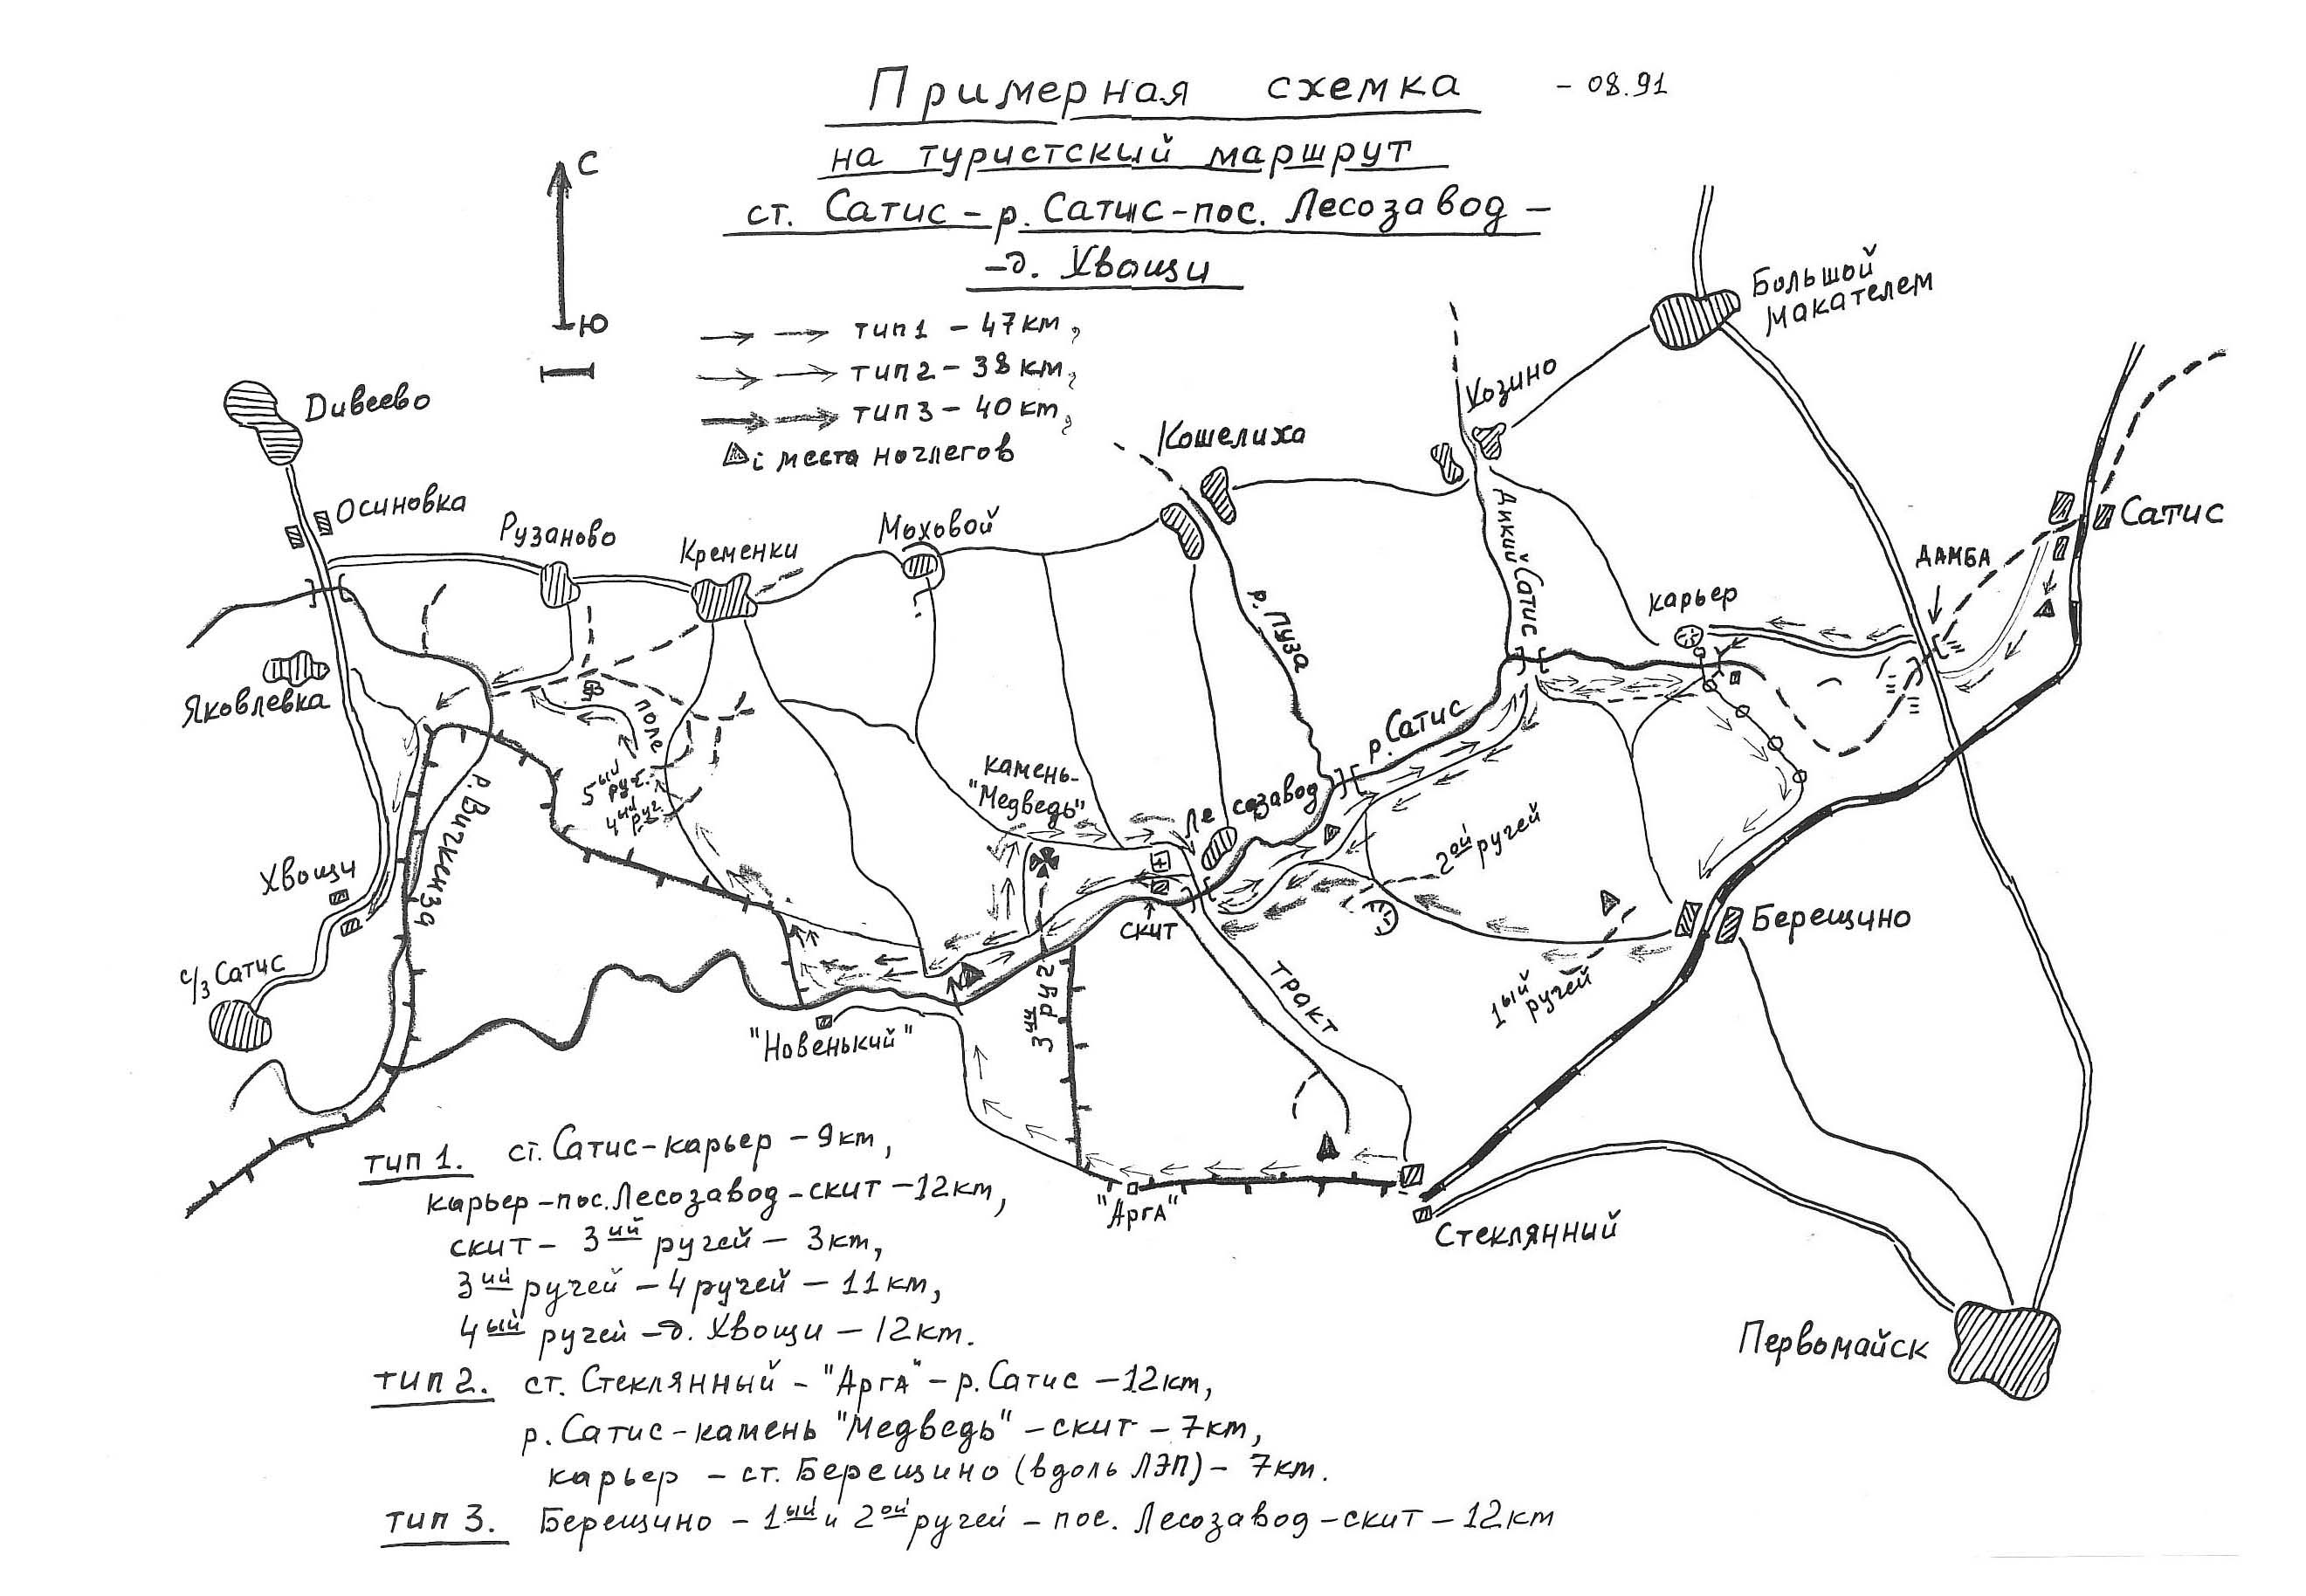 Примерная схемка - 08.91
на туристский маршрут
ст. Сатис - р. Сатис - пос. Лесозавод -
- д. Хвощи
С
Ю
тип 1 - 47 км,
тип 2 - 38 км,
тип 3 - 40 км,
места ночлегов
Большой
Макателем
Хозино
Кошелиха
Дивеево
Осиновка
Рузаново
Кременки
Моховой
Сатис
ДАМБА
Дикий Сатис
карьер
р. Пуза
Яковлевка
поле
р. Сатис
камень-
"Медведь"
5ый
руч.
4ый
руч.
Лесозавод
р. Вичкенза
2ой ручей
Хвощи
Берещино
скит
с/з Сатис
Тракт
1ый
ручей
3ий руч
"Новенький"
"Арга"
Стеклянный
Первомайск
тип 1. ст. Сатис - карьер - 9 км,
карьер - пос. Лесозавод - скит - 12 км,
скит - 3ий ручей - 3 км,
3ий ручей - 4 ручей - 11 км,
4ый ручей - д. Хвощи - 12 км.
тип 2. ст. Стеклянный - "Арга" - р. Сатис - 12 км,
р. Сатис - камень "Медведь" - скит - 7 км,
карьер - ст. Берещино (вдоль ЛЭП) - 7 км.
тип 3. Берещино - 1ый и 2ой ручей - пос. Лесозавод - скит - 12 км